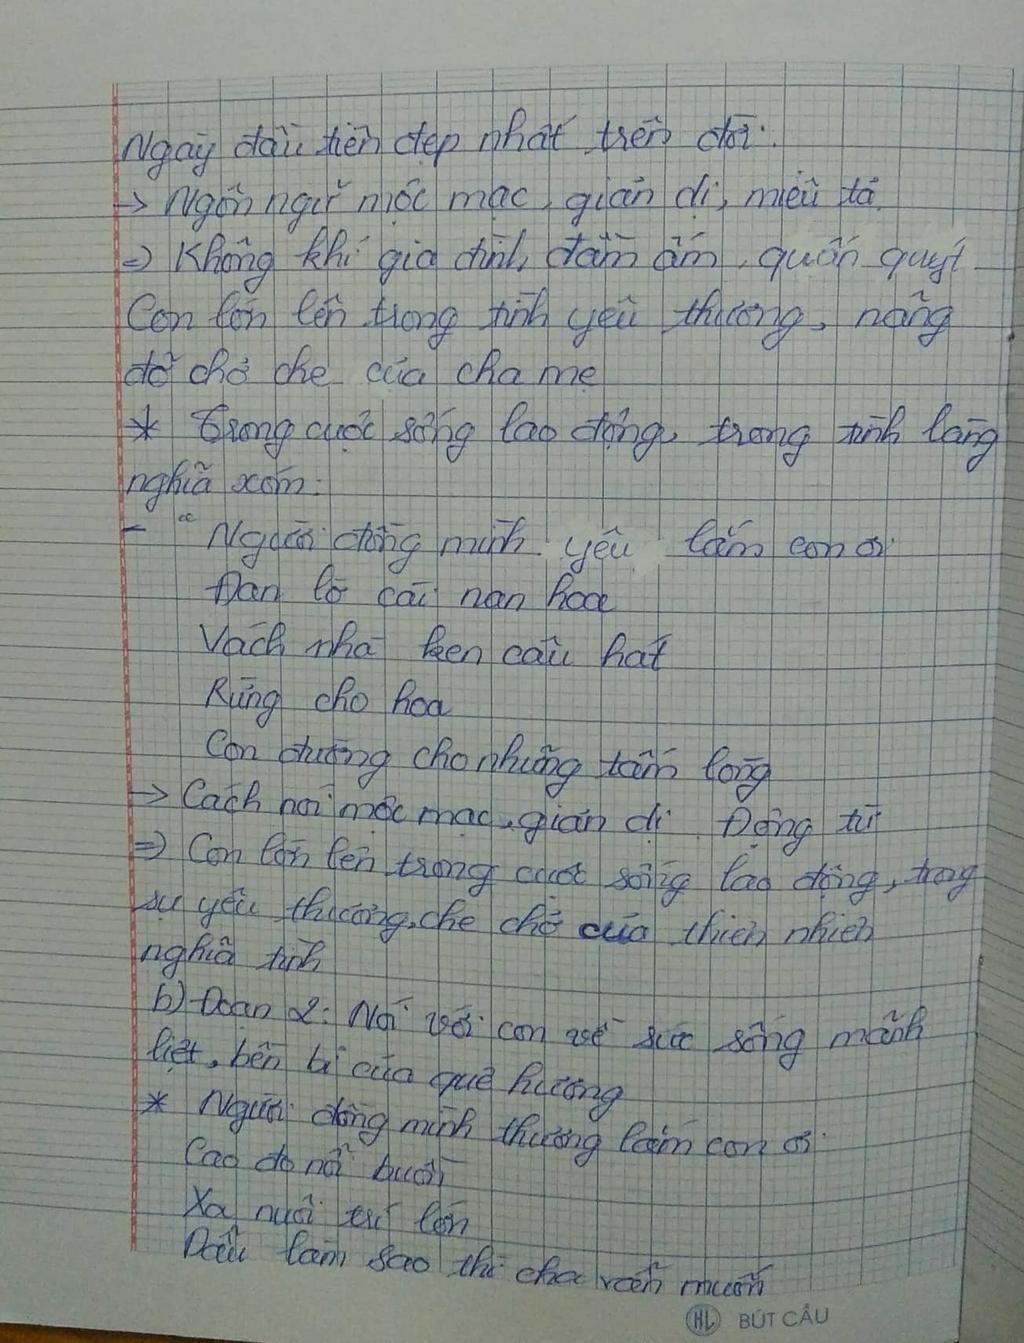 Ngày đầu tiên đẹp nhất trên đời.
-> Ngôn ngữ mộc mạc, giản dị, miêu tả.
=> Không khí gia đình, đầm ấm, quấn quýt
Con lớn lên trong tình yêu thương, nâng
đỡ chở che của cha mẹ
* Trong cuộc sống lao động, trong tình làng
nghĩa xóm:
- "Người đồng mình yêu lắm con ơi
Đan lờ cài nan hoa
Vách nhà ken câu hát
Rừng cho hoa
Con đường cho những tấm lòng
-> Cách nói mộc mạc, giản dị. Động từ
=> Con lớn lên trong cuộc sống lao động, trong
sự yêu thương, che chở của thiên nhiên
nghĩa tình
b) Đoạn 2: Nói với con về sức sống mãnh
liệt, bền bỉ của quê hương
* Người đồng mình thương lắm con ơi
Cao đo nỗi buồn
Xa nuôi chí lớn
Dẫu làm sao thì cha vẫn muốn
HL BÚT CÂU